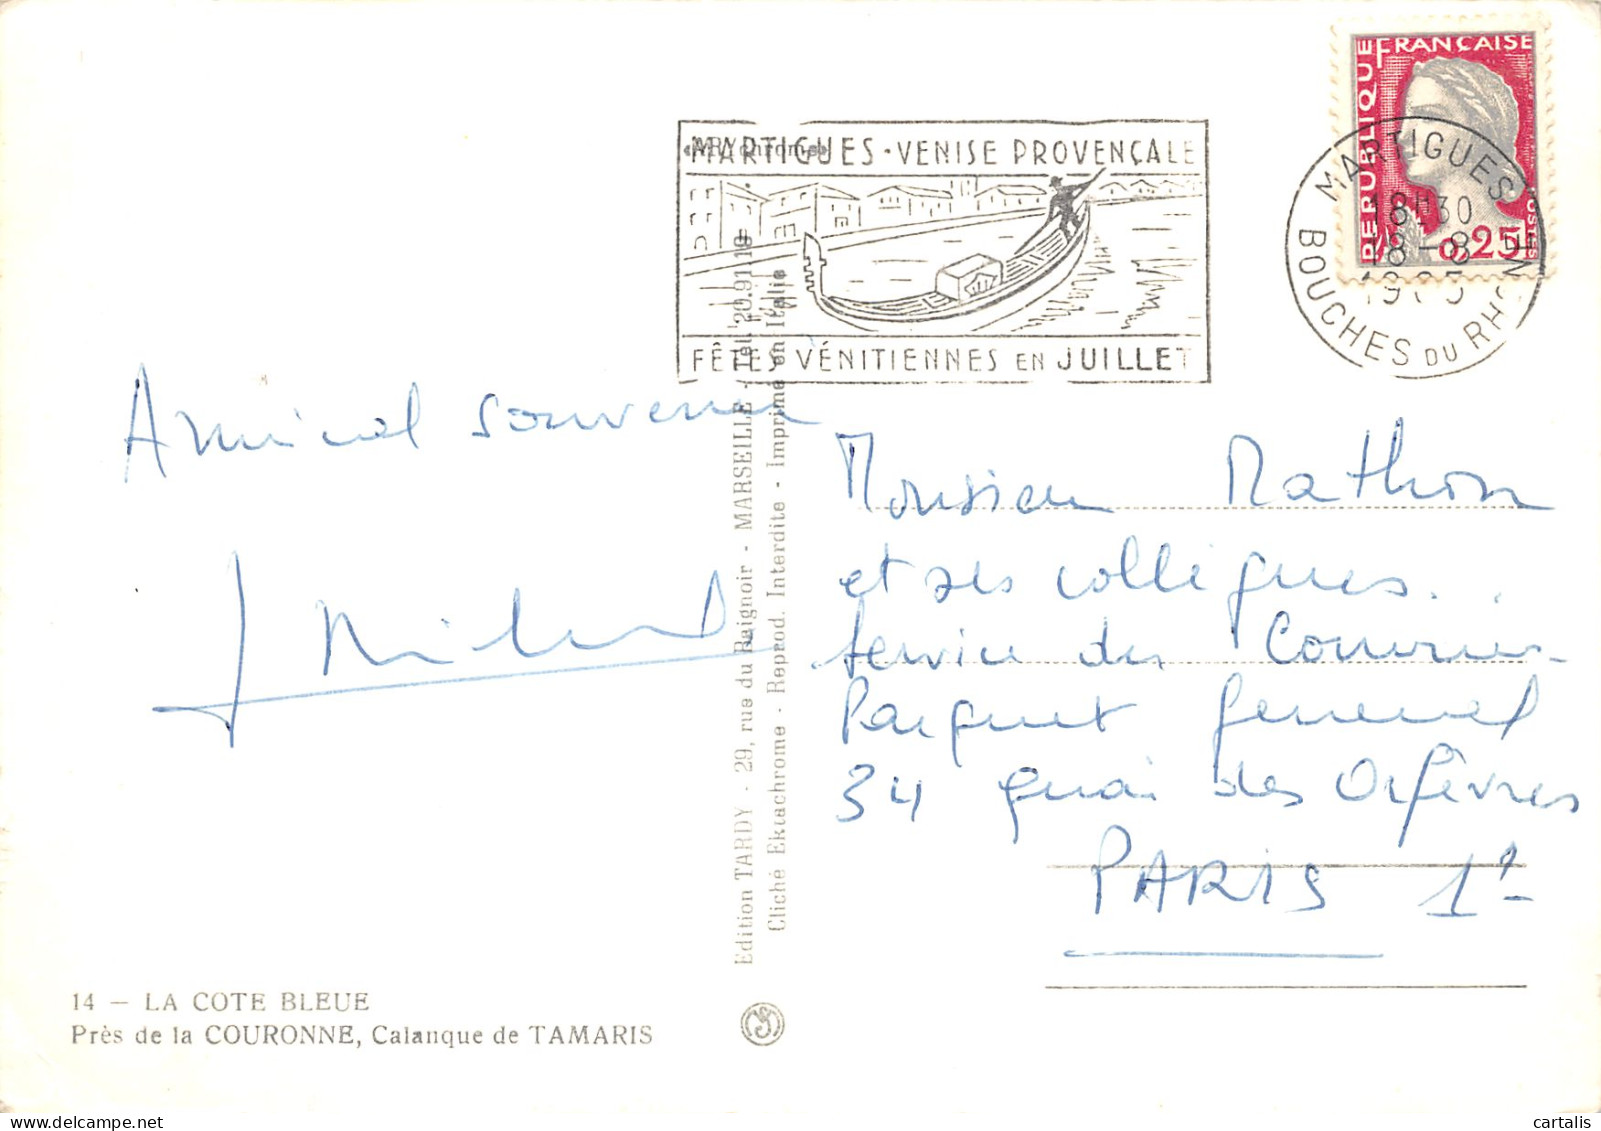 RÉPUBLIQUE FRANÇAISE
0,25
MARTIGUES
18H30
18-8
BOUCHES DU RHONE
MARTIGUES - VENISE PROVENÇALE
FÊTES VÉNITIENNES EN JUILLET
Amical souvenir
Monsieur Mathon
et ses collègues..
Service des Courriers
Parquet général
34 quai des Orfèvres
PARIS 1er
Edition TARDY - 29, rue du Baignoir - MARSEILLE - Tel. 20.91.19
Cliché Ektachrome - Reprod. Interdite - Imprimé en Italie
14 — LA COTE BLEUE
Près de la COURONNE, Calanque de TAMARIS
cartalis